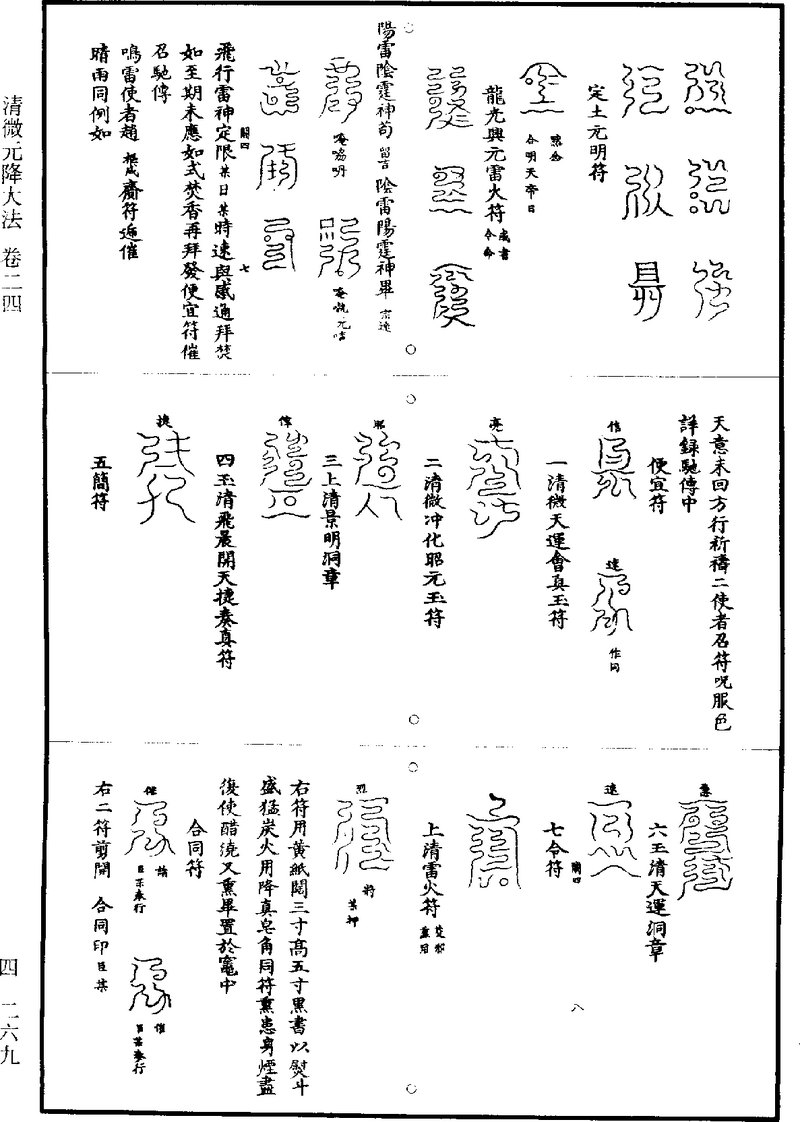 定土元明符
合明天帝日
龍光與元雷火符
陽雷陰霆神苟 留吉 陰雷陽霆神畢 宗遠
唵吸唎
飛行雷神定限某日某時速與感通拜焚
關四
七
如至期未應如式焚香再拜發便宜符催
召馳傳
鳴雷使者趙 齋符遞催
晴雨同例如
天意未回方行祈禱二使者召符呪服色
詳錄馳傳中
便宜符
信
速
一清微天運會真玉符
亮
二清微冲化昭元玉符
昭
三上清景明洞章
偉
四玉清飛晨開天捷奏真符
捷
五簡符
六玉清天運洞章
速
七令符
關四
八
上清雷火符
烈
符
某押
右符用黃紙闊三寸高五寸黑書以熨斗
盛猛炭火用降真皂角同符熏患身煙盡
復使醋澆又熏畢置於竈中
合同符
臣某奉行
催
臣某奉行
右二符剪開 合同印 臣某
清微元降大法 卷二四
四 二六九